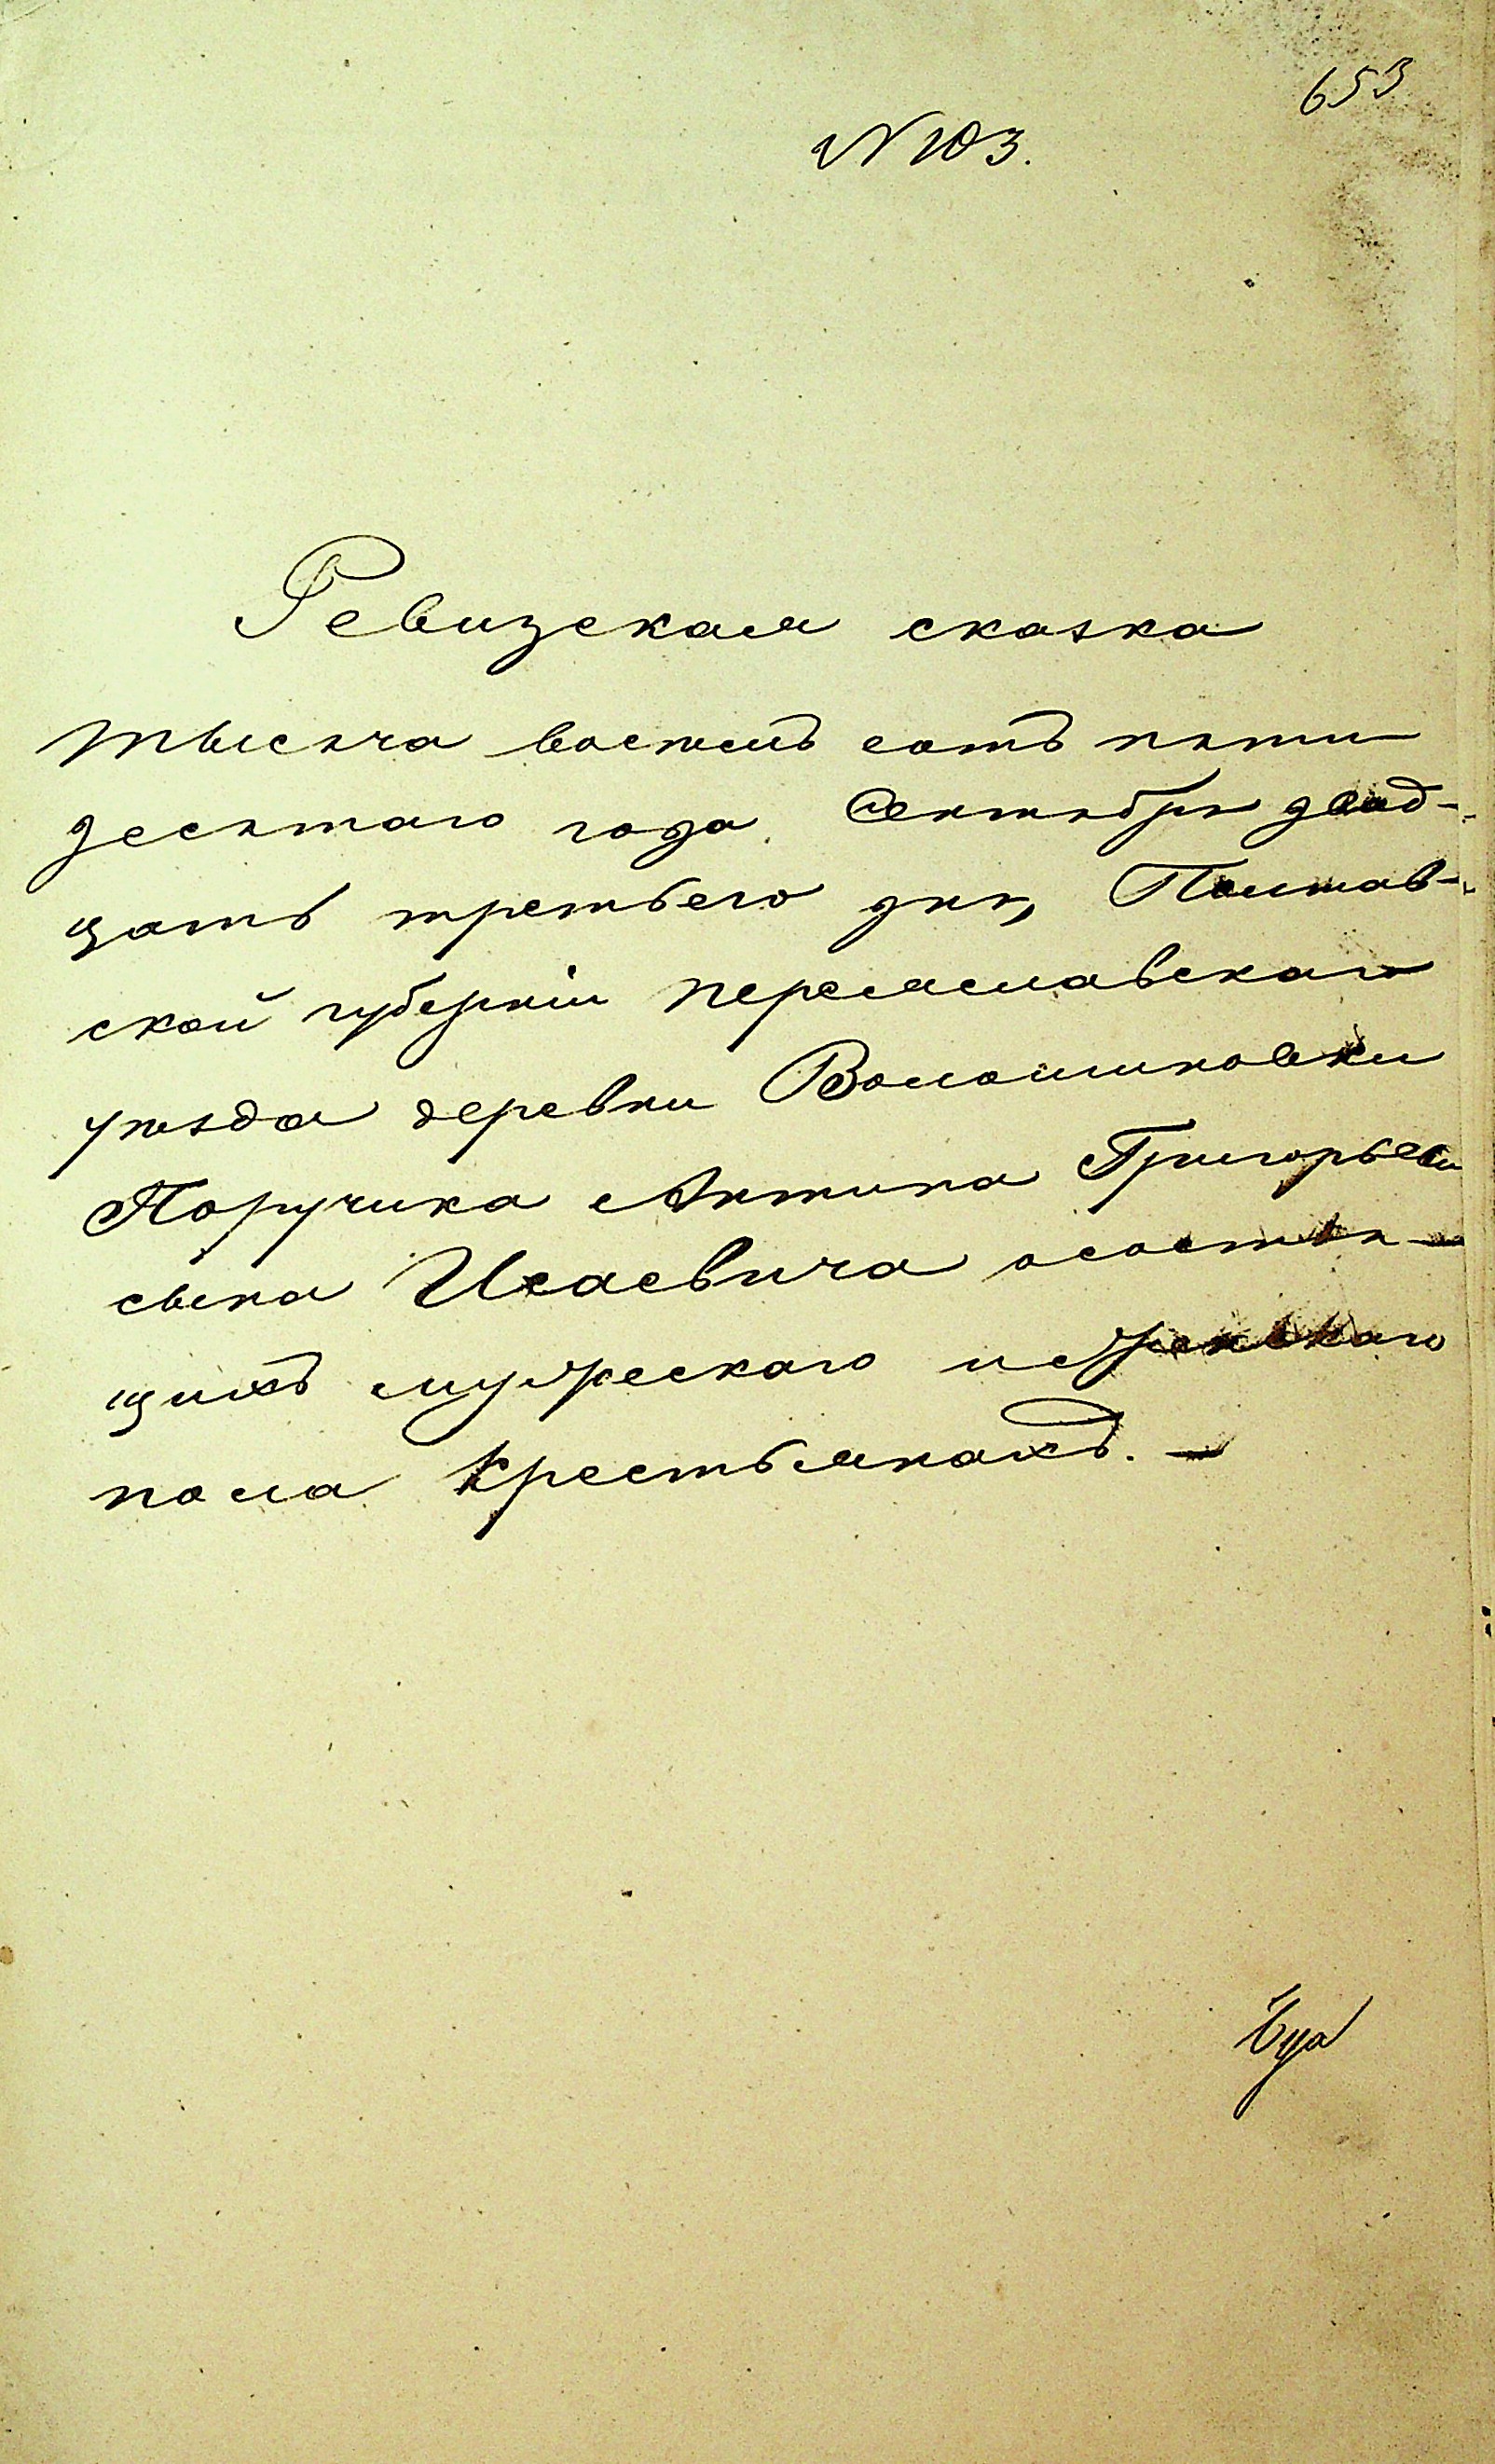 653
N 103.
Ревизская сказка
тысяча восемь сотъ пяти
десятаго года. Сентября двад-
цать третьего дня, Полтав-
ской губерніи Переяславскаго
уѣзда деревни Волошиновки
Поручика Антина Григорьева
сына Исаевича о состоя-
щихъ мужескаго и женскаго
пола крестьянахъ. -